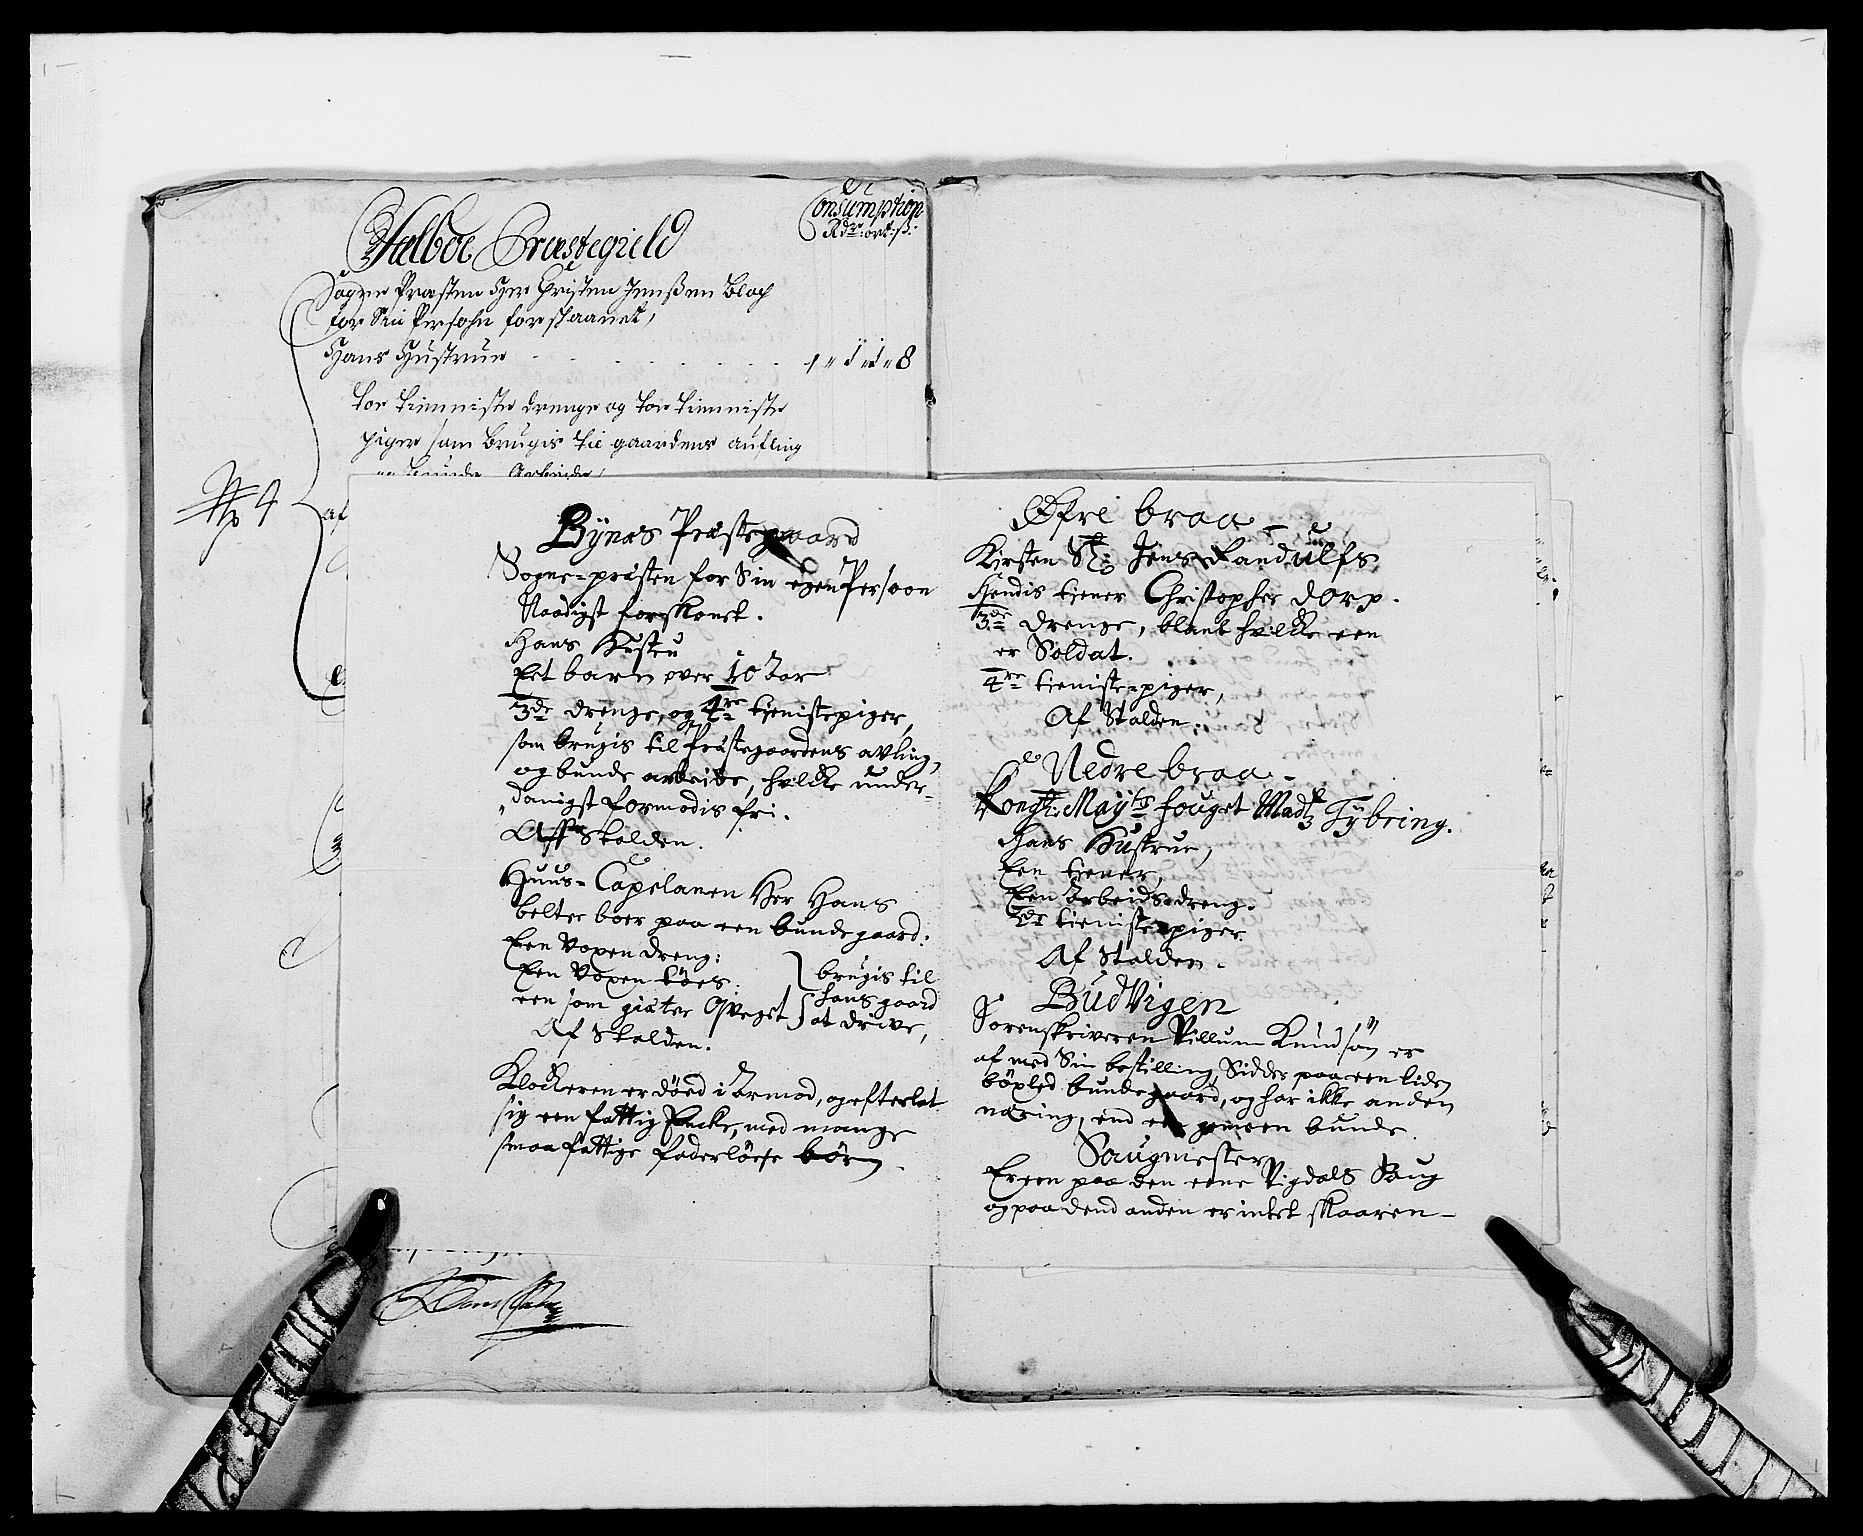 Consumption
Rdr: ort: ß:
Præstegield
Sogne Præsten Her Christen Jenßen Bloch
for Sin Persohn forskaanet,
Hans Hustrue - - - 1 " 8
toe tienniste drenge og toe tienniste
piger som brugis til gaardens aufling
No 4
af
Bÿnæs Præstegaard
Sogne-præsten for Sin egen Persoon
Naadigst forskonet.
Hans Hustru
Eet barn over 10 Aar
3de drenge, og 4re tienistepiger,
som brugis til Præstegaardens avling,
og bunde arbeide, hvilcke under-
danigst formodis fri.
Aff Stalden.
Huus-Capelanen Her Hans
belter boer paa een bundegaard:
Een Voxen dreng:
Een Voxen tøes.
een som giæter Qveget
brugis til
hans gaard
at drive,
Af Stalden.
Klockeren er döed i Armod, og efterlat
sig een fattig Encke, med mange
smaa fattige faderlöese börn.
Øfre braa
Kirsten Sl: Jens Randulfs
Hendis tiener Christopher Dorp.
3de drenge, blant hvilcke een
er Soldat.
4re tieniste-piger,
Af Stalden.
Nedre braa
Kongl: Mayts fouget Madtz Tÿbring.
Hans Hustrue,
Een tiener,
Een Arbeids-dreng.
tieniste-piger
Af Stalden.
Budvigen
Sorenskriveren Villum Knudsön er
af med Sin bestilling, Sidder paa een liden
böxled bundegaard, og har ikke anden
næring, end een gemeen bunde.
Saugmester
Er een paa den eene Vigdals Saug
og paa dend anden er intet skaaren